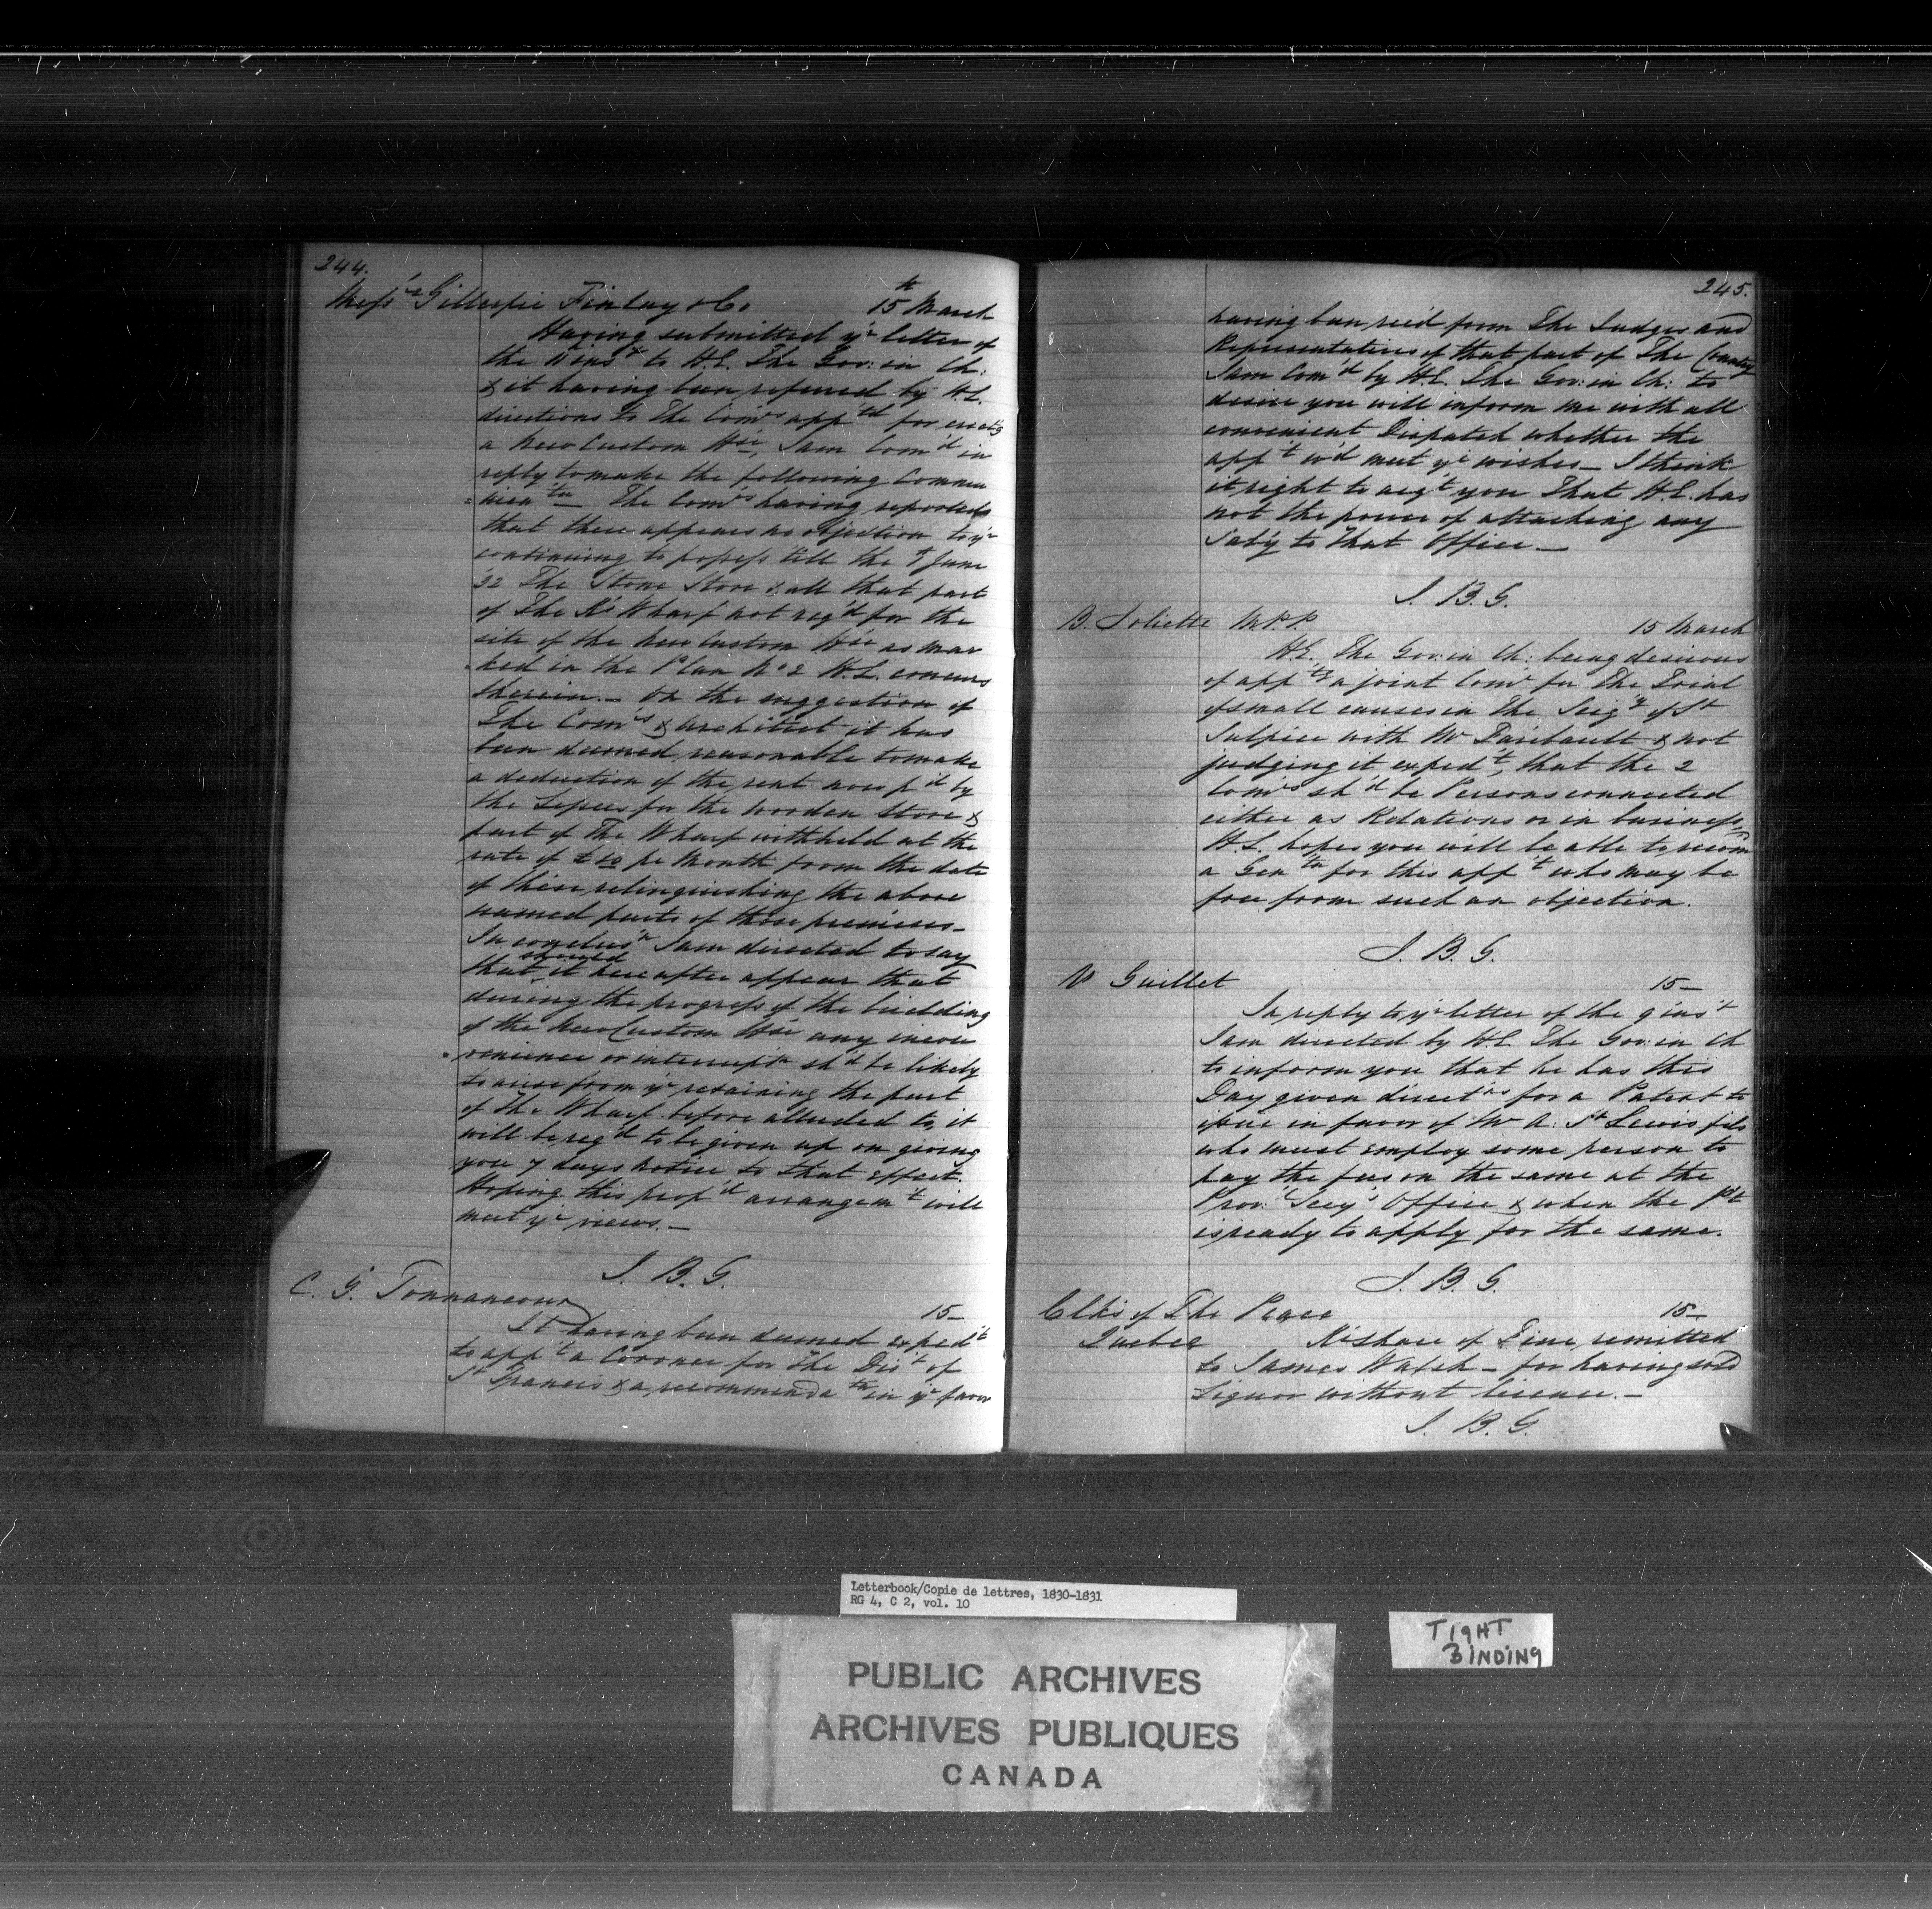 244.
Mess'rs Gillespie Finlay & Co. 15th March
Having submitted y'r letter of
the to H.E. The Gov: in Ch:
& it having been referred by H.E.
directions to The Com'rs app'td for erect'g
a New Custom H'se, I am Com'd in
reply to make the following Commu
=nica'tn The Com'rs having reported
that there appears no objection to y'r
continuing to possess till the June
32 The Stone Store & all that part
of The K's Wharf not req'd for the
site of the New Custom H'se as mar
=ked in the Plan No 2 H.E. concurs
therein.— On the suggestion of
The Com'rs & Architect it has
been deemed reasonable to make
a deduction of the rent now p'd by
the Lessees for the Wooden Store &
part of The Wharf withheld at the
rate of £10 pr Month from the date
of these relinquishing the above
named parts of those premises—
In conclus'n I am directed to say
that should it hereafter appear that
during the progress of the building
of the New Custom H'se any incon
=venience or interrupt'n sh'd be likely
to arise from y'r retaining the part
of The Wharf before alluded to, it
will be req'd to be given up on giving
you 7 days notice to that effect.
Hoping this prop'd arrangem't will
meet y'r views.—
J. B. G.
C. G. Tonnancour 15—
It having been deemed exped't
to app't a Coroner for The Dis't of
St Francis & a recommenda'tn in y'r favor
245.
having been rec'd from The Judges and
Representatives of that part of The Country
I am Com'd by H.E. The Gov: in Ch: to
desire you will inform me with all
convenient Dispatch whether the
app't w'd meet y'r wishes— I think
it right to acq't you That H.E. has
not the power of attaching any
Sal'y to that Office—
J. B. G.
B. Joliette M.P.P. 15 March
H.E. The Gov: in Ch: being desirous
of app'tg a joint Com'r for The Trial
of small causes in The Seig'y of St
Sulpice with Mr Faribault & not
judging it exped't, that the 2
Com'rs sh'd be Persons connected
either as Relations or in business,
H.E. hopes you will be able to recom'd
a Gen'tn for this app't who may be
free from such an objection.
J. B. G.
V Guillet 15—
In reply to y'r letter of the 9 ins't
I am directed by H.E. The Gov: in Ch
to inform you that he has this
Day given direct'ns for a Patent to
issue in favor of Mr A: St Lewis fils
who must employ some person to
pay the fees on the same at the
Prov: Secy's Office & when the Pt
is ready to apply for the same.
J. B. G.
Clks of The Peace 15—
Quebec K's share of Fine remitted
to James Walsh— for having sold
Liquor without license.—
J. B. G.
Letterbook/Copie de lettres, 1830-1831
RG 4, C 2, vol. 10
PUBLIC ARCHIVES
ARCHIVES PUBLIQUES
CANADA
TIGHT
BINDING